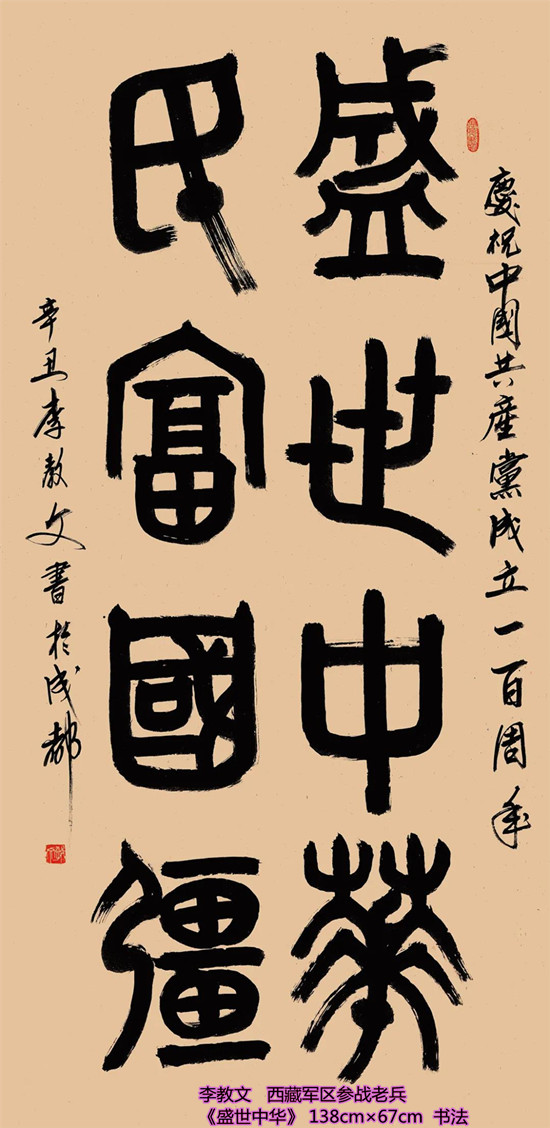 慶祝中國共產黨成立一百周年
盛世中華
民富國彊
辛丑李教文書於成都
李教文 西藏军区参战老兵
《盛世中华》 138cm×67cm 书法